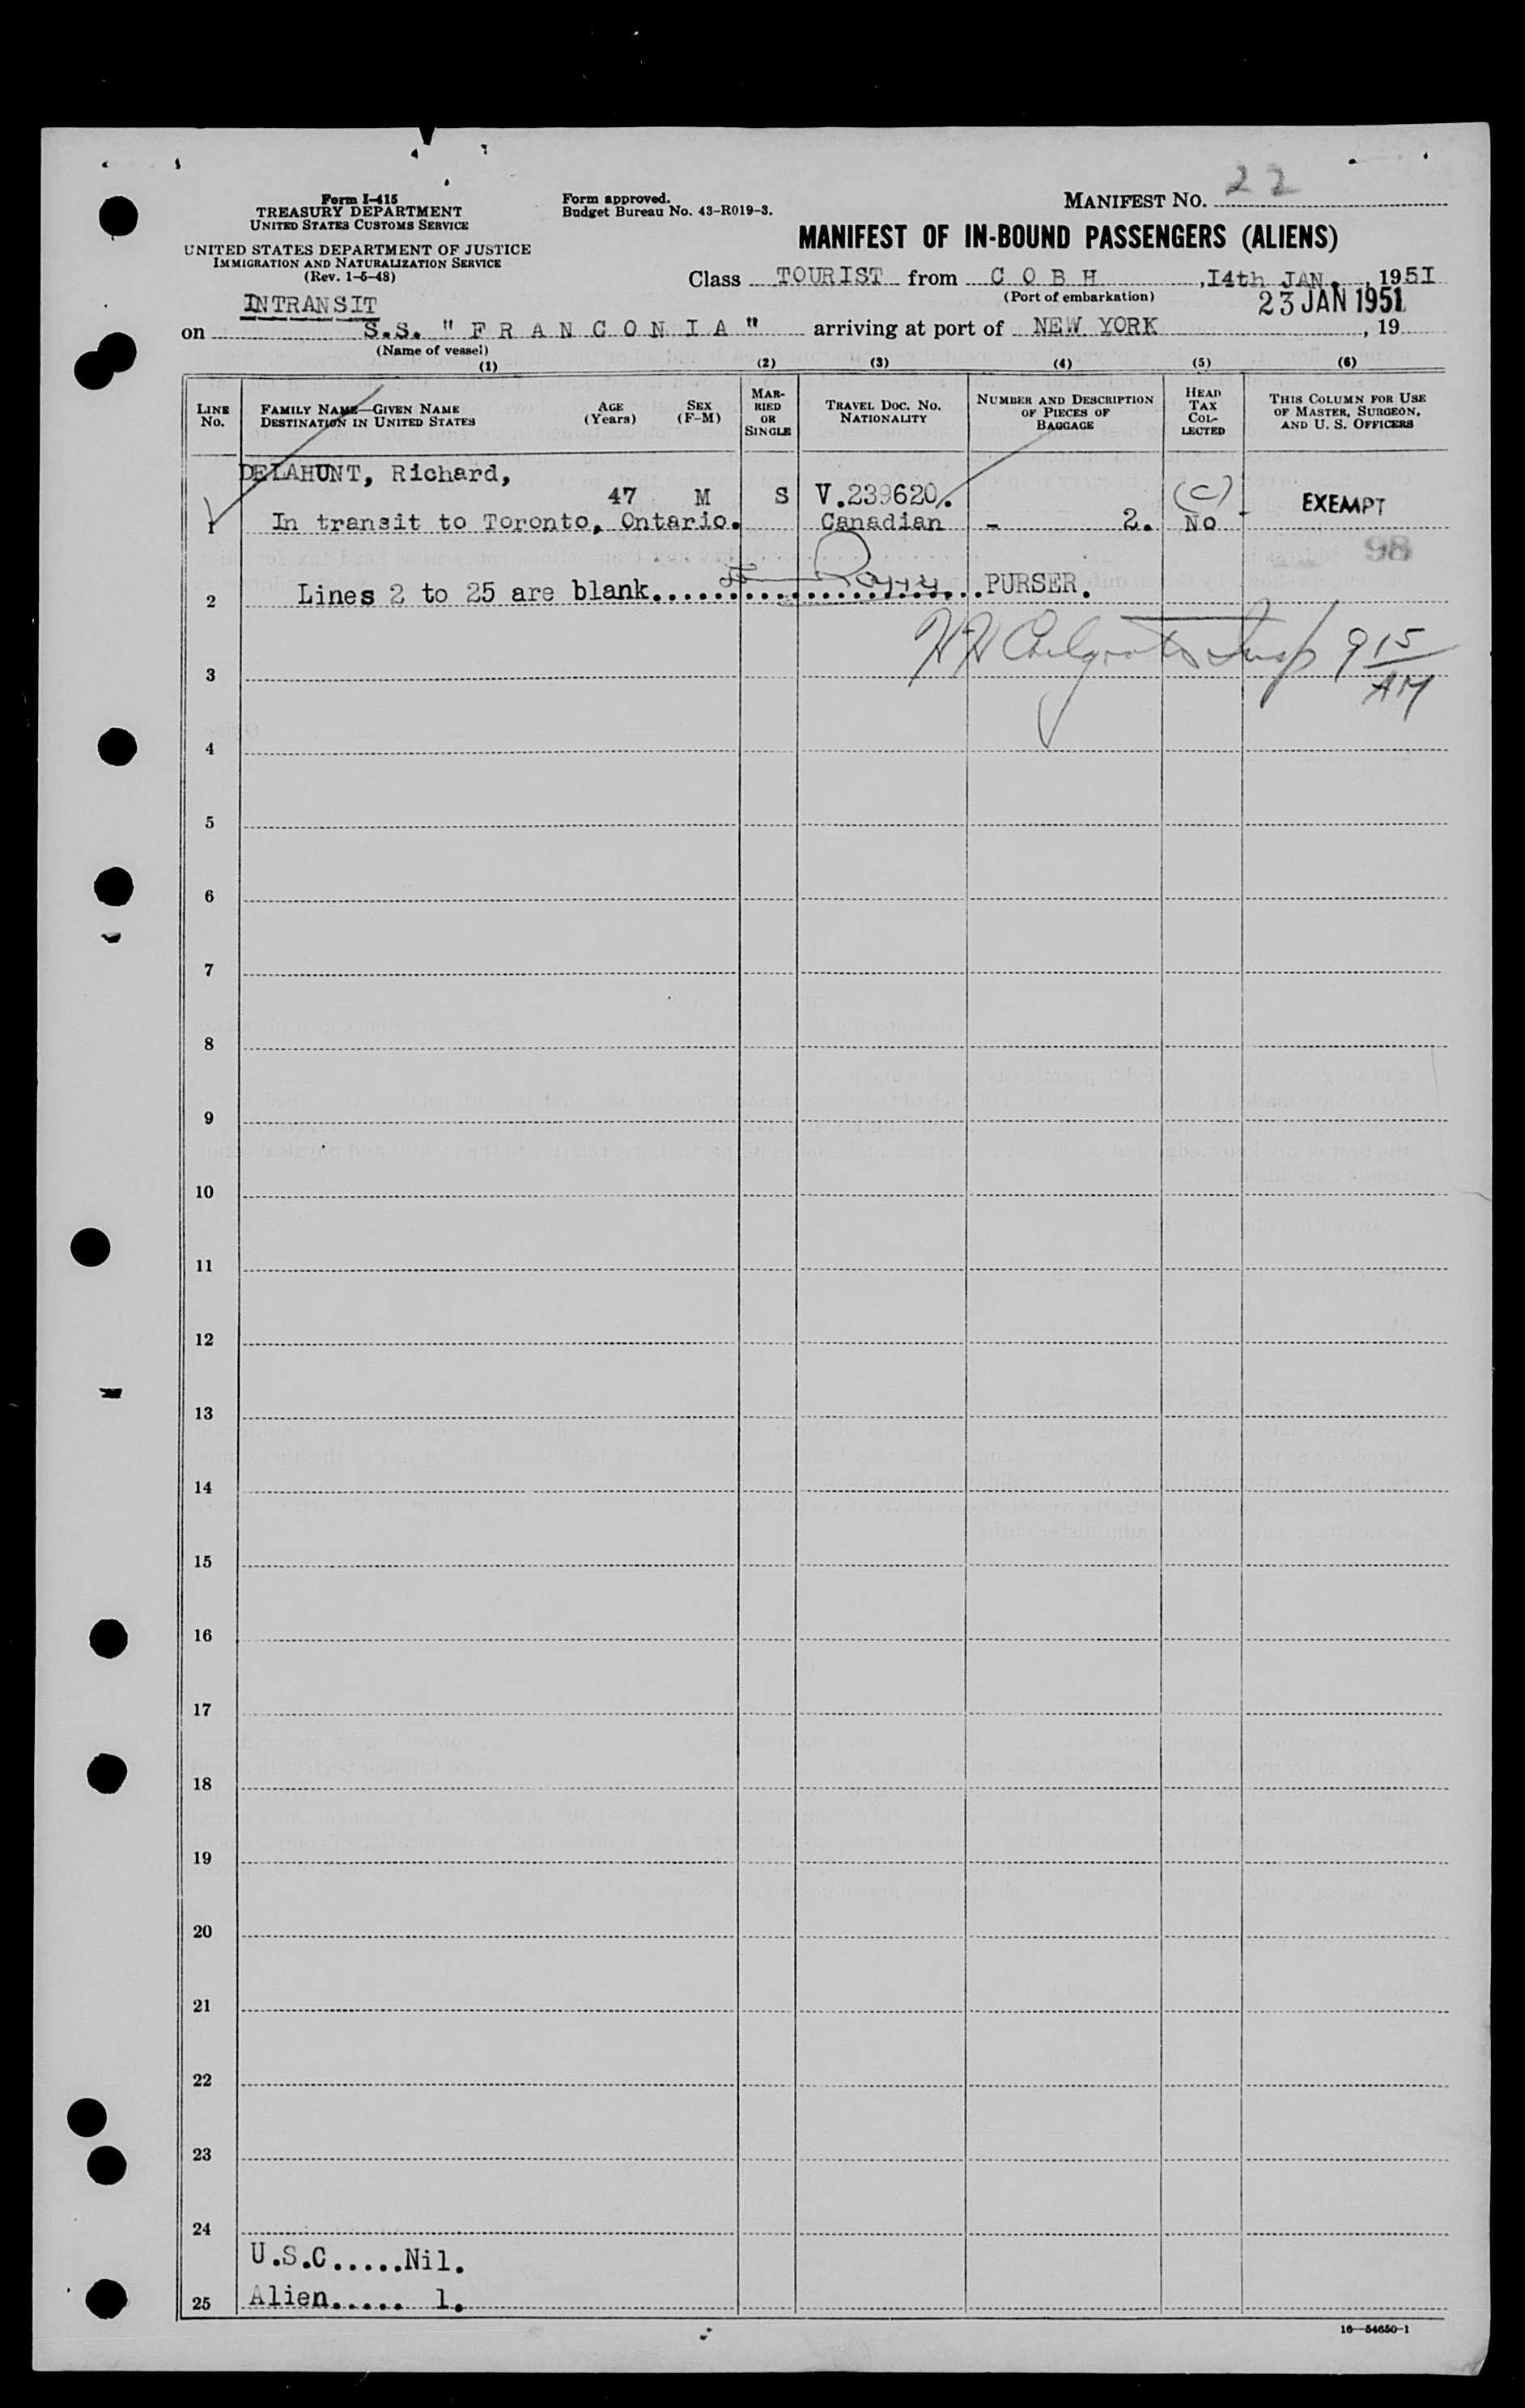 22
Form I-415
TREASURY DEPARTMENT
UNITED STATES CUSTOMS SERVICE
Form approved.
Budget Bureau No. 43-R019-3.
MANIFEST NO.
UNITED STATES DEPARTMENT OF JUSTICE
IMMIGRATION AND NATURALIZATION SERVICE
(Rev. 1-5-48)
MANIFEST OF IN-BOUND PASSENGERS (ALIENS)
Class TOURIST from C O B H, 14th JAN., 1951
(Port of embarkation)
INTRANSIT
23 JAN 1951
on S.S. "F R A N C O N I A" arriving at port of NEW YORK, 19
(Name of vessel)
(1) (2) (3) (4) (5) (6)
LINE No. FAMILY NAME—GIVEN NAME DESTINATION IN UNITED STATES AGE (Years) SEX (F-M) MARRIED OR SINGLE TRAVEL DOC. NO. NATIONALITY NUMBER AND DESCRIPTION OF PIECES OF BAGGAGE HEAD TAX COLLECTED THIS COLUMN FOR USE OF MASTER, SURGEON, AND U. S. OFFICERS
DELAHUNT, Richard,
47 M S V.239620. (C) EXEMPT
1 In transit to Toronto, Ontario. Canadian - 2. No
98
2 Lines 2 to 25 are blank. PURSER.
Insp 9 15 AM
3
4
5
6
7
8
9
10
11
12
13
14
15
16
17
18
19
20
21
22
23
24
U.S.C.....Nil.
25 Alien..... 1.
16—54650-1